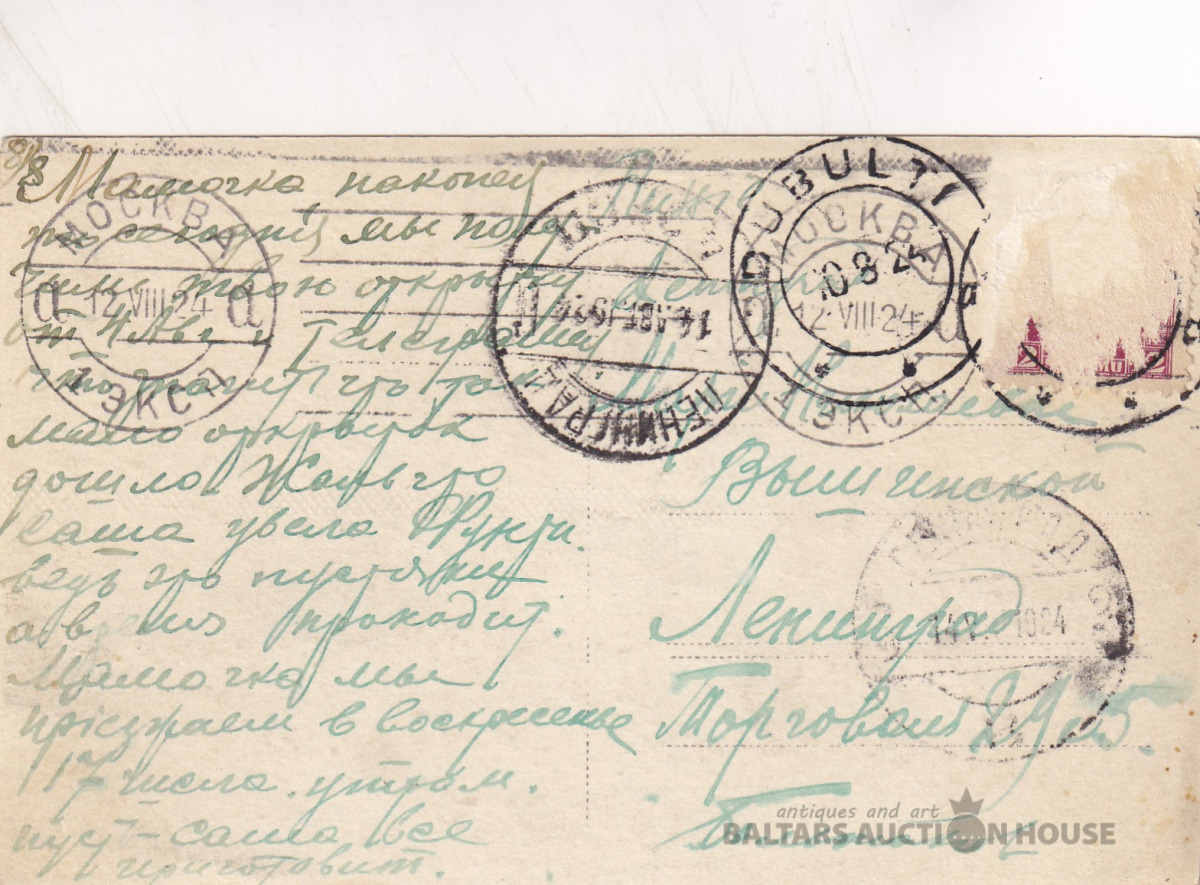 8/8
Мамочка наконец
то сегодня мы полу
чили твою открытку
от и телеграмму
что значит что так
мало открыток
дошло. Жаль что
Саша увела
ведь это пустяки
а время проходит.
Мамочка мы
приезжаем в воскресенье
17 числа утром.
пусть Саша все
приготовит.
Вышинской
Ленинград
Торговая д. 25.
МОСКВА
а 12 VIII 24 а
1 ЭКСП
14 АВГ 1924
ЛЕНИНГРАД
DUBULTI
10 8 24
МОСКВА
12 VIII 24
1 ЭКСП
а
1924
antiques and art
BALTARS AUCTION HOUSE